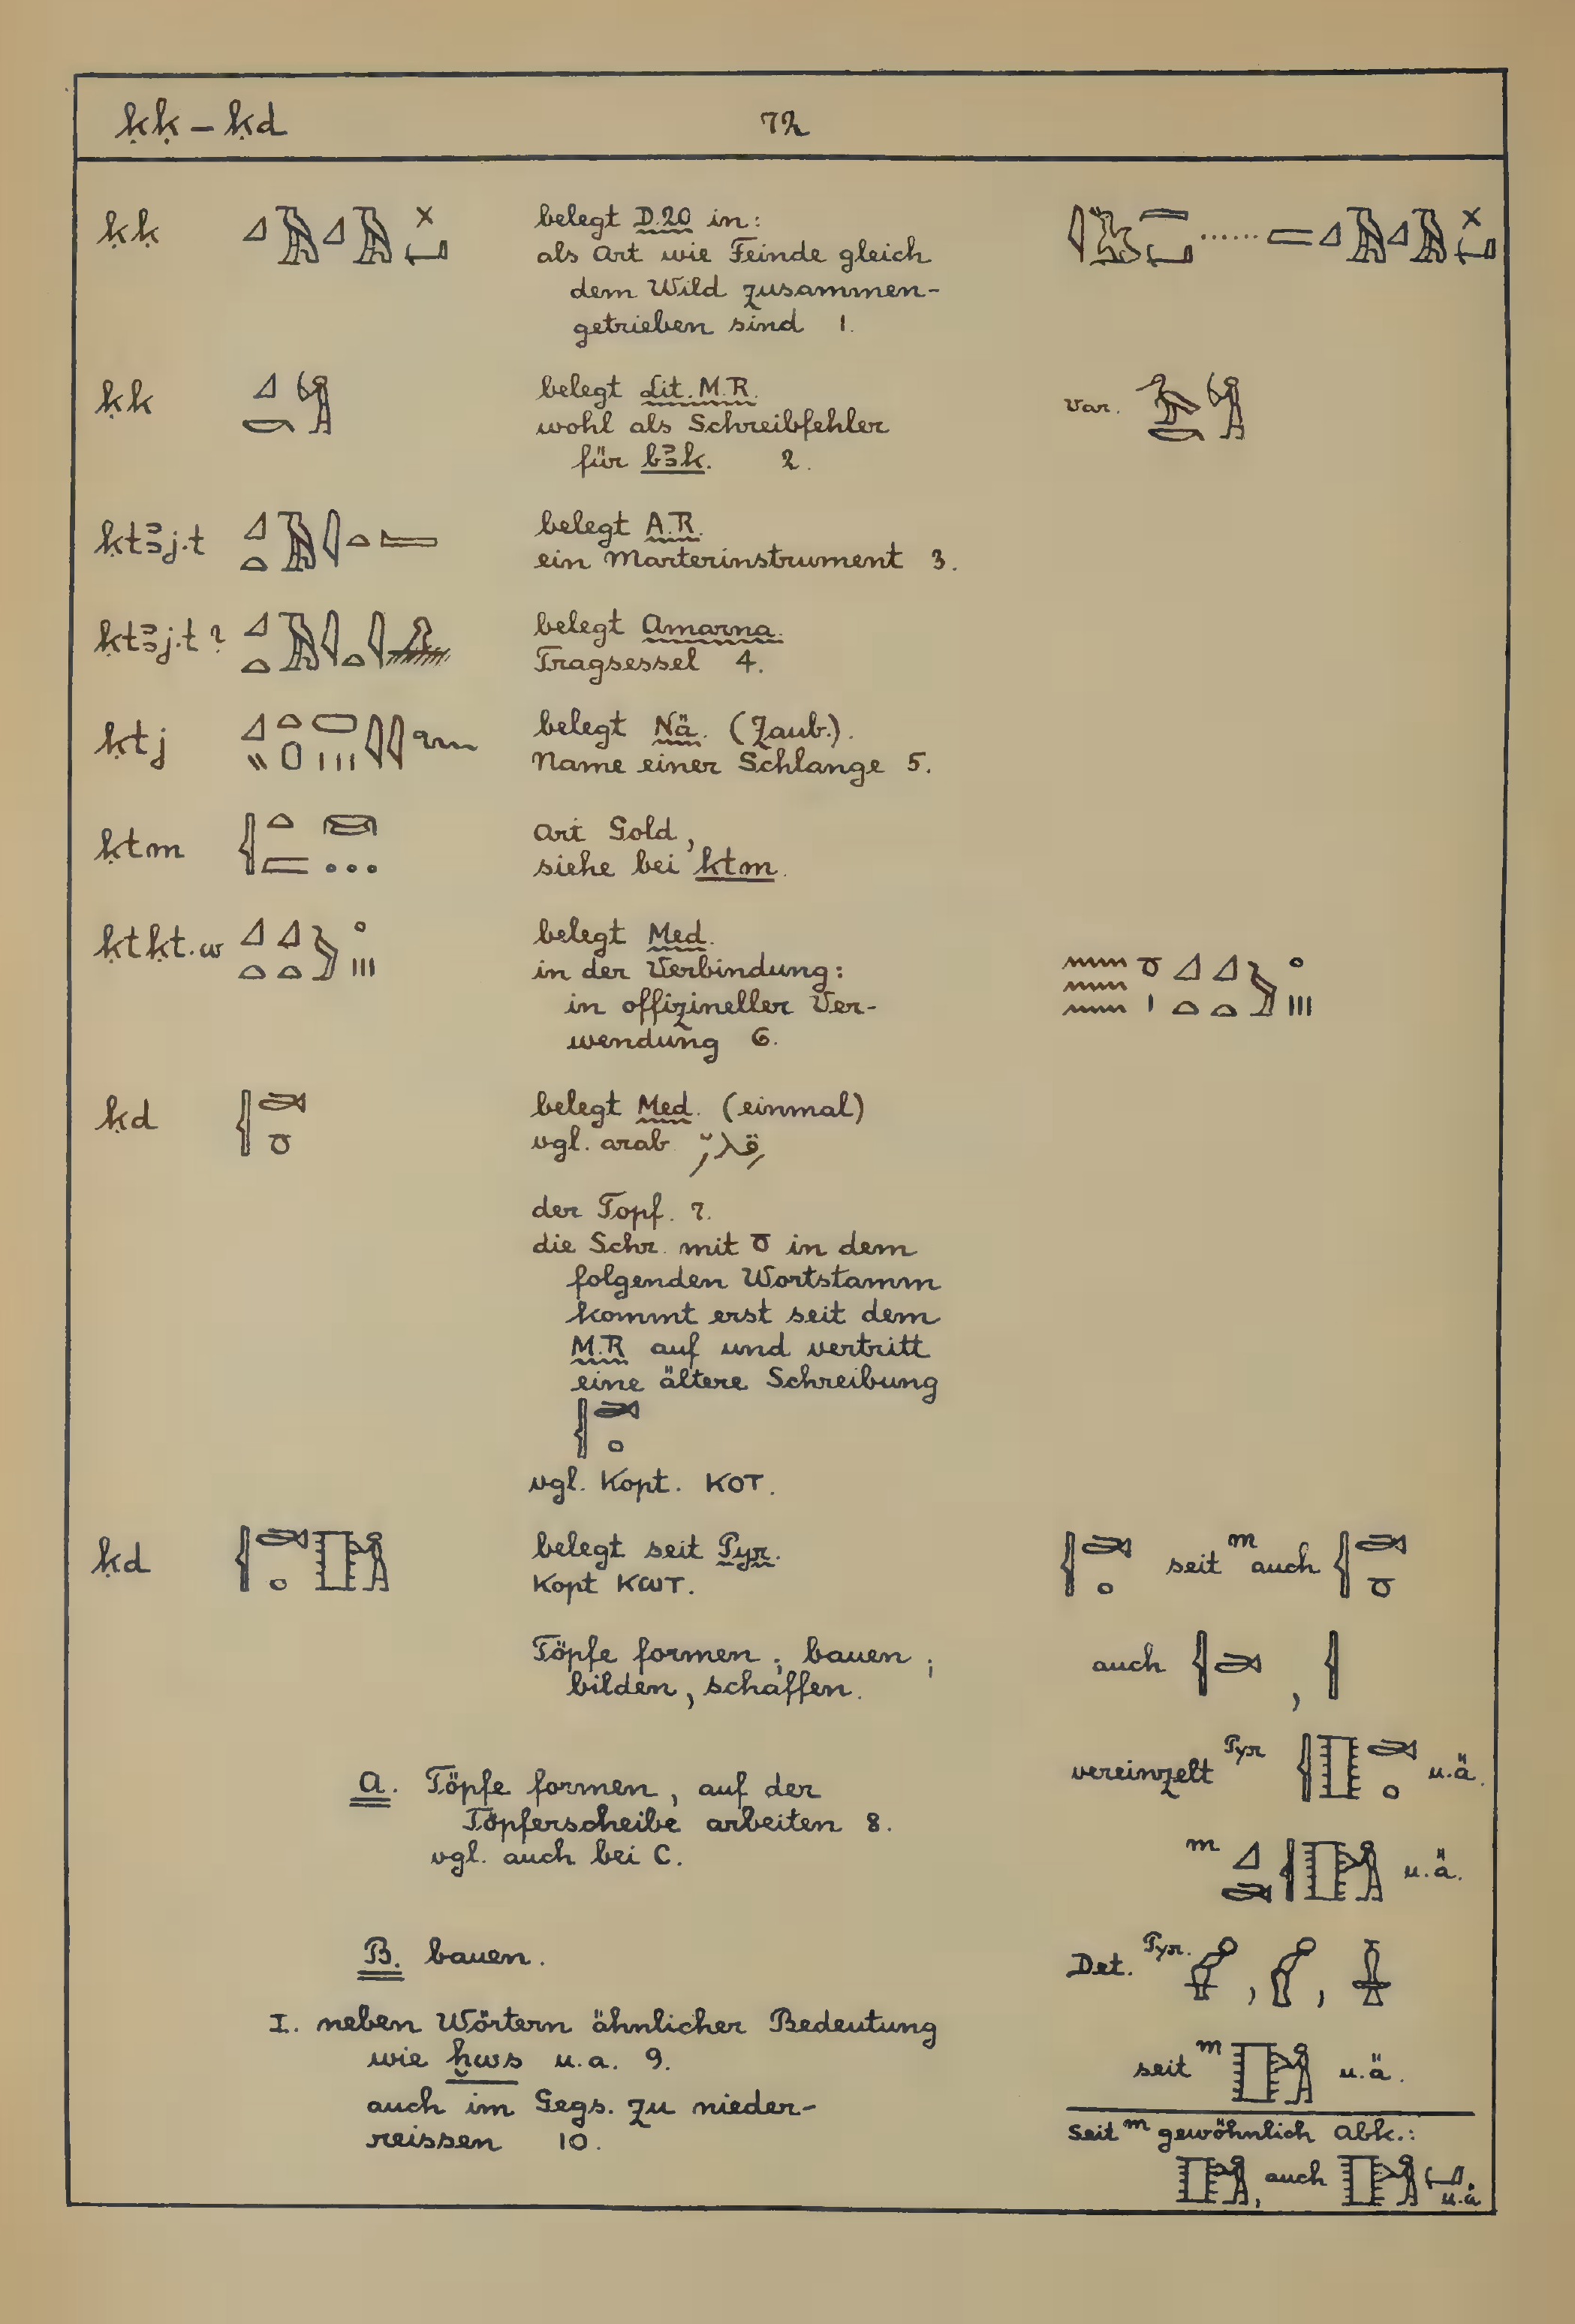 ḳḳ – ḳd 72
ḳḳ belegt D.20 in:
als Art wie Feinde gleich
dem Wild zusammen-
getrieben sind 1.
ḳk belegt Lit. M.R.
wohl als Schreibfehler
für bꜣk. 2.
Var.
ḳtꜣj.t belegt A.R.
ein Marterinstrument 3.
ḳtꜣj.t? belegt Amarna.
Tragsessel 4.
ḳtj belegt Nä. (Zaub.).
Name einer Schlange 5.
ḳtm Art Gold,
siehe bei ktm.
ḳtḳt.w belegt Med.
in der Verbindung:
in offizineller Ver-
wendung 6.
ḳd belegt Med. (einmal)
vgl. arab قِدْرٌ
der Topf. 7.
die Schr. mit 𓏌 in dem
folgenden Wortstamm
kommt erst seit dem
M.R auf und vertritt
eine ältere Schreibung
vgl. Kopt. ⲕⲟⲧ.
ḳd belegt seit Pyr.
Kopt ⲕⲱⲧ.
Töpfe formen; bauen;
bilden, schaffen.
A. Töpfe formen, auf der
Töpferscheibe arbeiten 8.
vgl. auch bei C.
B. bauen.
I. neben Wörtern ähnlicher Bedeutung
wie ḫws u.a. 9.
auch im Gegs. zu nieder-
reissen 10.
seit m auch
auch ,
vereinzelt Pyr u.ä.
m u.ä.
Det. Pyr. , ,
seit m u.ä.
Seit m gewöhnlich Abk.:
, auch u.ä.